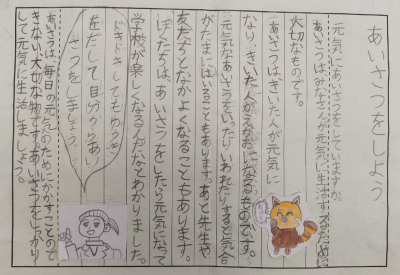 あいさつをしよう
元気にあいさつをしていますか。
あいさつはみなさんが元気に生活するために
大切なものです。
「あいさつはきいた人が元気に
なり、きいた人がえがおになるものです。
元気なあいさつをいったりいわれたりすると気合
がたまにはいることもあります。あと先生や
友だちとなかよくなることもあります。
ぼくたちは、あいさつをしたら元気になって
学校が楽しくなるんだなとわかりました。
ドキドキしてもゆうき
をだして自分からあい
さつをしましょう。
あいさつは、毎日の元気のためにかかすことので
きない大切な物です。あいさつをしっかり
して元気に生活しましょう。